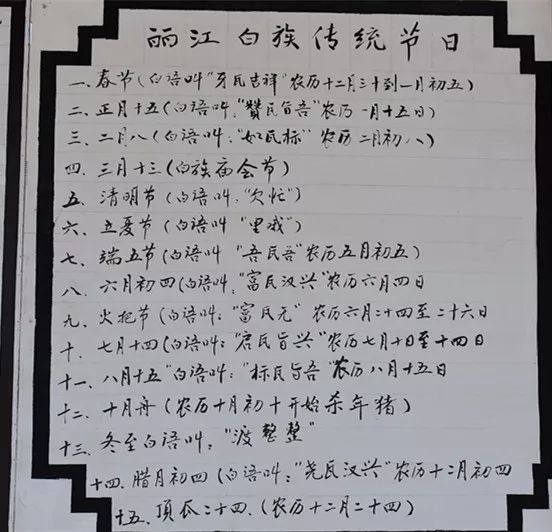 丽江白族传统节日
一、春节(白语叫"牙瓦吉祥"农历十二月三十到一月初五)
二、正月十五(白语叫:"赞瓦旨吾"农历一月十五日)
三、二月八(白语叫:"如瓦标"农历二月初八)
四、三月十三(白族庙会节)
五、清明节(白语叫:"欠忙")
六、立夏节(白语叫"里戒")
七、端五节(白语叫"吾瓦吾"农历五月初五)
八、六月初四(白语叫:"富瓦汉兴"农历六月四日
九、火把节(白语叫:"富瓦元"农历六月二十四至二十六日
十、七月十四(白语叫:"启瓦旨兴"农历七月十日至十四日
十一、八月十五"白语叫:"标瓦旨吾"农历八月十五日
十二、十月舟(农历十月初十开始杀年猪)
十三、冬至白语叫:"渡整整"
十四、腊月初四(白语叫:"尧瓦汉兴"农历十二月初四
十五、頂瓜二十四.(农历十二月二十四)